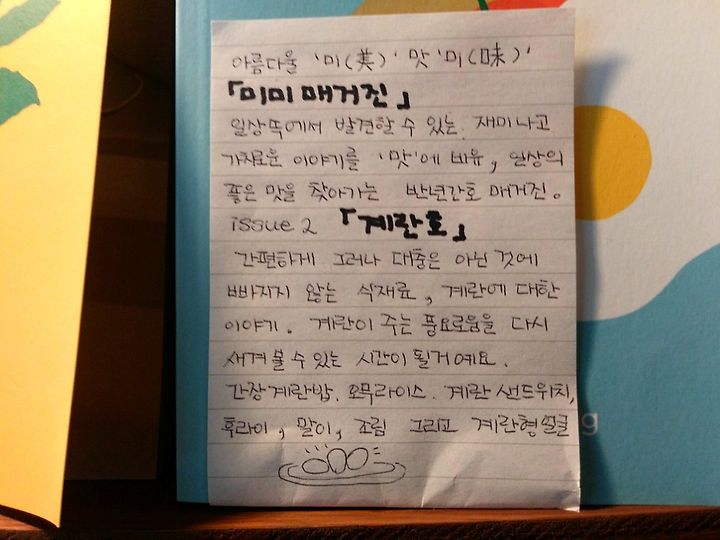 아름다울 '미(美)' 맛 '미(味)'
「미미 매거진」
일상 뚝에서 발견할 수 있는. 재미나고
가치로운 이야기를 '맛'에 비유, 일상의
좋은 맛을 찾아가는 반년간호 매거진.
issue 2 「계란호」
간편하게 그러나 대충은 아닌 것에
빠지지 않는 식재료, 계란에 대한
이야기. 계란이 주는 풍요로움을 다시
새겨 볼 수 있는 시간이 될거예요.
간장계란밥. 오무라이스. 계란 샌드위치,
후라이, 말이, 조림 그리고 계란형 얼굴
g